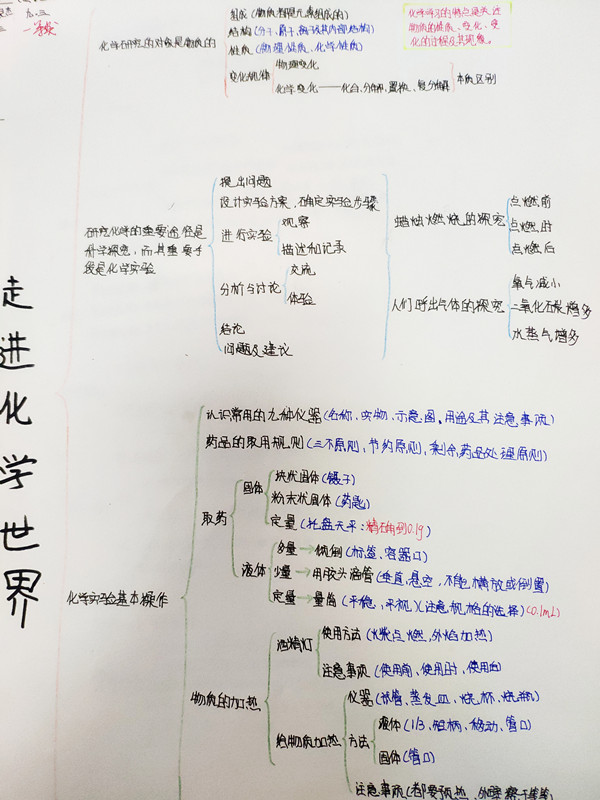 九.三
一等奖
组成(物质都是元素组成的)
化学研究的对象是物质的
结构(分子、原子、离子及其内部结构)
性质(物理性质、化学性质)
变化规律
物理变化
化学变化——化合、分解、置换、复分解
本质区别
化学学习的特点是关注
物质的性质、变化、变
化的过程及其现象。
研究化学的重要途径是
科学探究,而其重要手
段是化学实验
提出问题
设计实验方案、确定实验步骤
进行实验
观察
描述和记录
分析与讨论
交流
体验
结论
问题及建议
蜡烛燃烧的探究
点燃前
点燃时
点燃后
人们呼出气体的探究
氧气减小
二氧化石炭增多
水蒸气增多
走进化学世界
化学实验基本操作
认识常用的九种仪器(名称、实物、示意图、用途及其注意事项)
药品的取用规则(三不原则、节约原则、剩余药品处理原则)
取药
固体
块状固体(镊子)
粉末状固体(药匙)
定量(托盘天平:精确到0.1g)
液体
多量→倾倒(标签、容器口)
少量→用胶头滴管(垂直、悬空、不能横放或倒置)
定量→量筒(平稳、平视)(注意规格的选择)(0.1mL)
物质的加热
酒精灯
使用方法(火柴点燃、外焰加热)
注意事项(使用前、使用时、使用后)
给物质加热
仪器(试管、蒸发皿、烧杯、烧瓶)
方法
液体(1/3、短柄、移动、管口)
固体(管口)
注意事项(都要预热、外壁擦干等等)